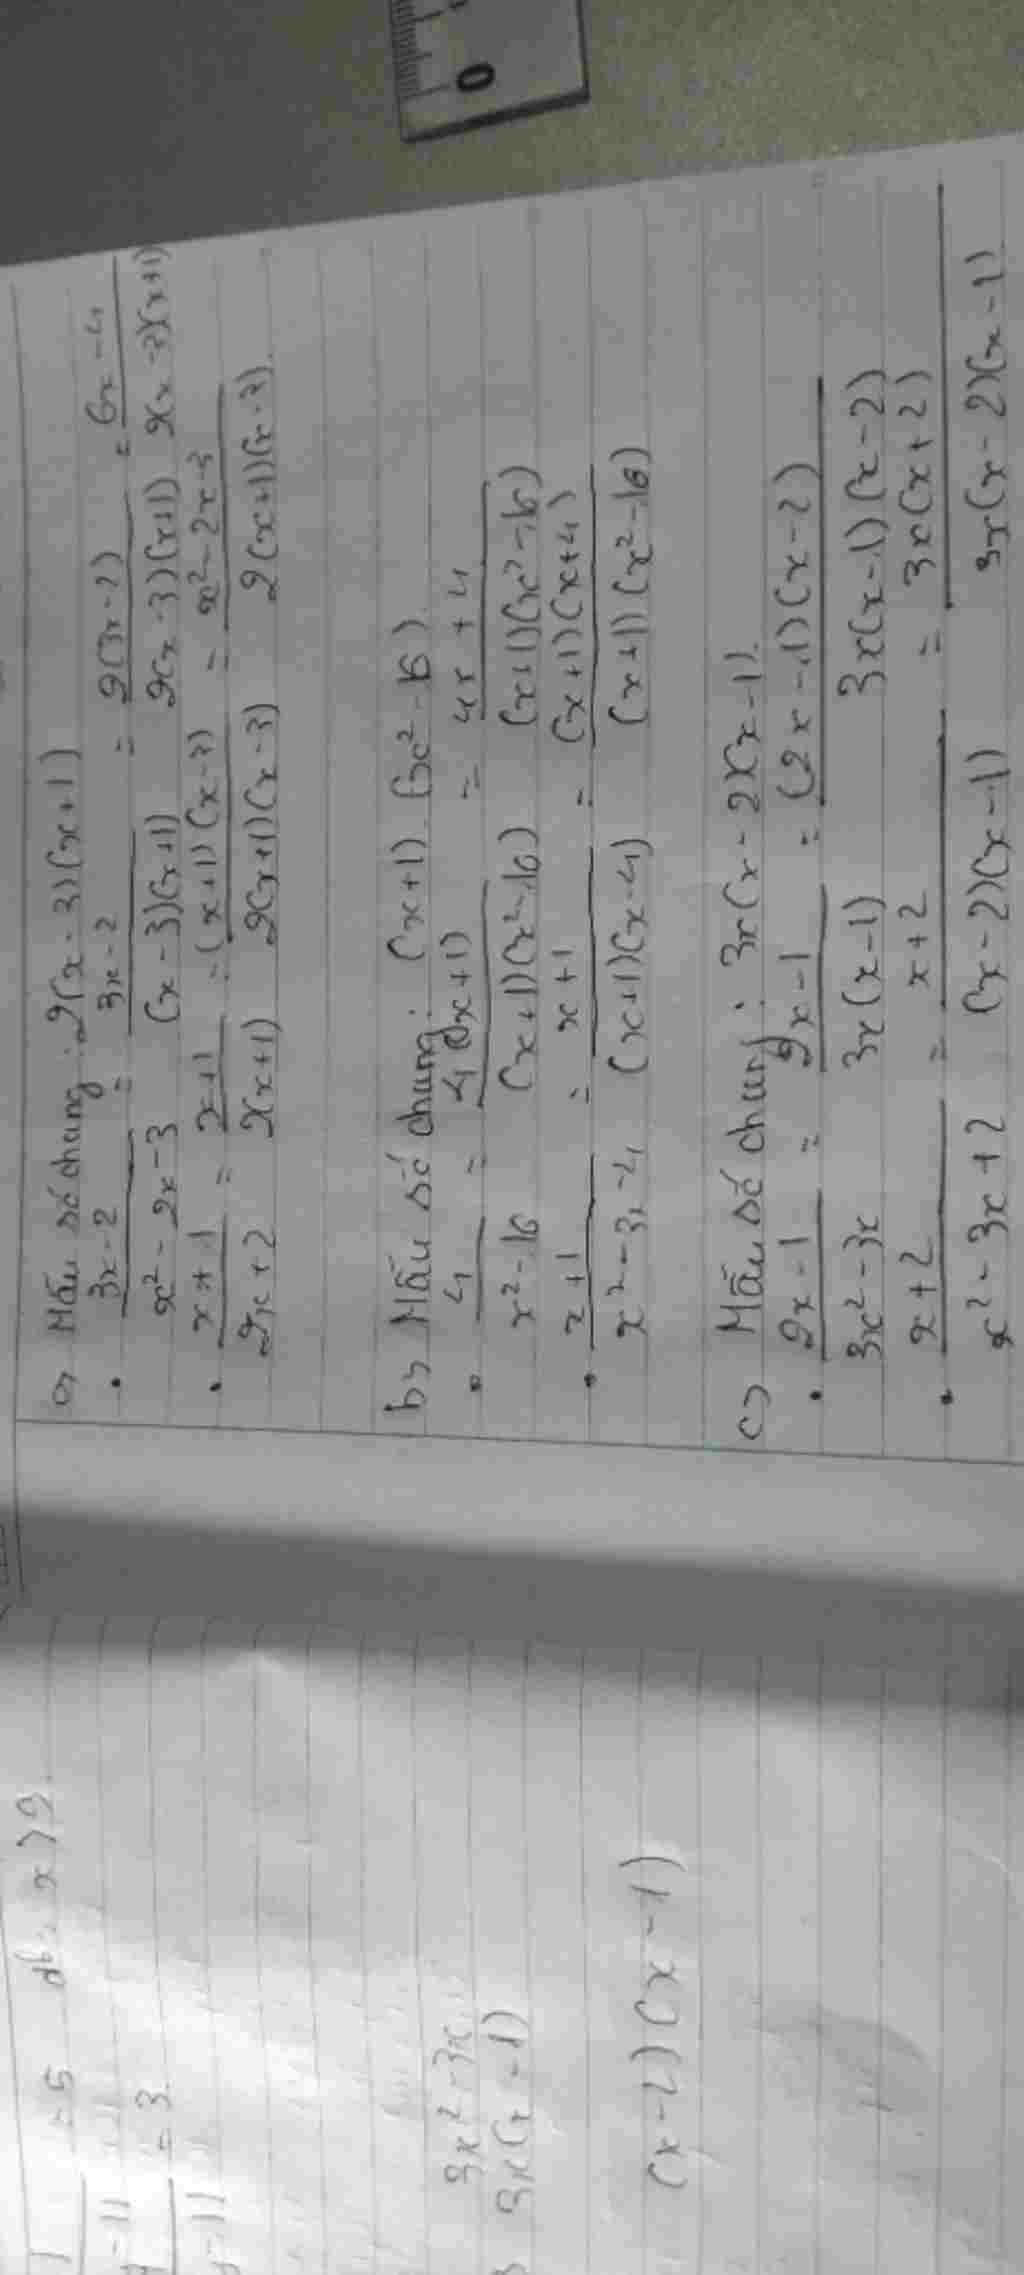 a) Mẫu số chung: 2(x-3)(x+1)
• (3x-2)/(x²-2x-3) = (3x-2)/((x-3)(x+1)) = 2(3x-2)/(2(x-3)(x+1)) = (6x-4)/(2(x-3)(x+1))
• (x+1)/(2x+2) = (x+1)/(2(x+1)) = (x+1)(x-3)/(2(x+1)(x-3)) = (x²-2x-3)/(2(x+1)(x-3))
b) Mẫu số chung: (x+1).(x²-16)
• 4/(x²-16) = 4(x+1)/((x+1)(x²-16)) = (4x+4)/((x+1)(x²-16))
• (x+1)/(x²-3x-4) = (x+1)/((x+1)(x-4)) = (x+1)(x+4)/((x+1)(x²-16))
c) Mẫu số chung: 3x(x-2)(x-1)
• (2x-1)/(3x²-3x) = (2x-1)/(3x(x-1)) = (2x-1)(x-2)/(3x(x-1)(x-2))
• (x+2)/(x²-3x+2) = (x+2)/((x-2)(x-1)) = 3x(x+2)/(3x(x-2)(x-1))
= 5
-11
= 3
-11
3x²-3x
3x(x-1)
(x-2)(x-1)
0